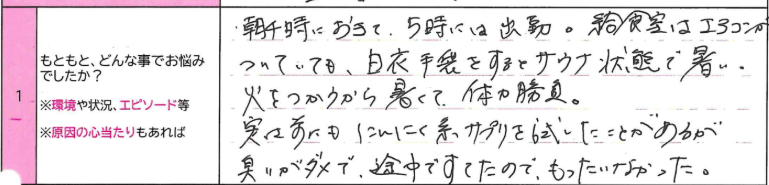 1
もともと、どんな事でお悩み
でしたか？
※環境や状況、エピソード等
※原因の心当たりもあれば
・朝4時におきて、5時には出勤。給食室はエアコンが
ついていても、白衣手袋をするとサウナ状態で暑い。
火をつかうから暑くて、体力勝負。
実は前にもにんにく系サプリを試したことがあるが
臭いがダメで、途中ですてたので、もったいなかった。